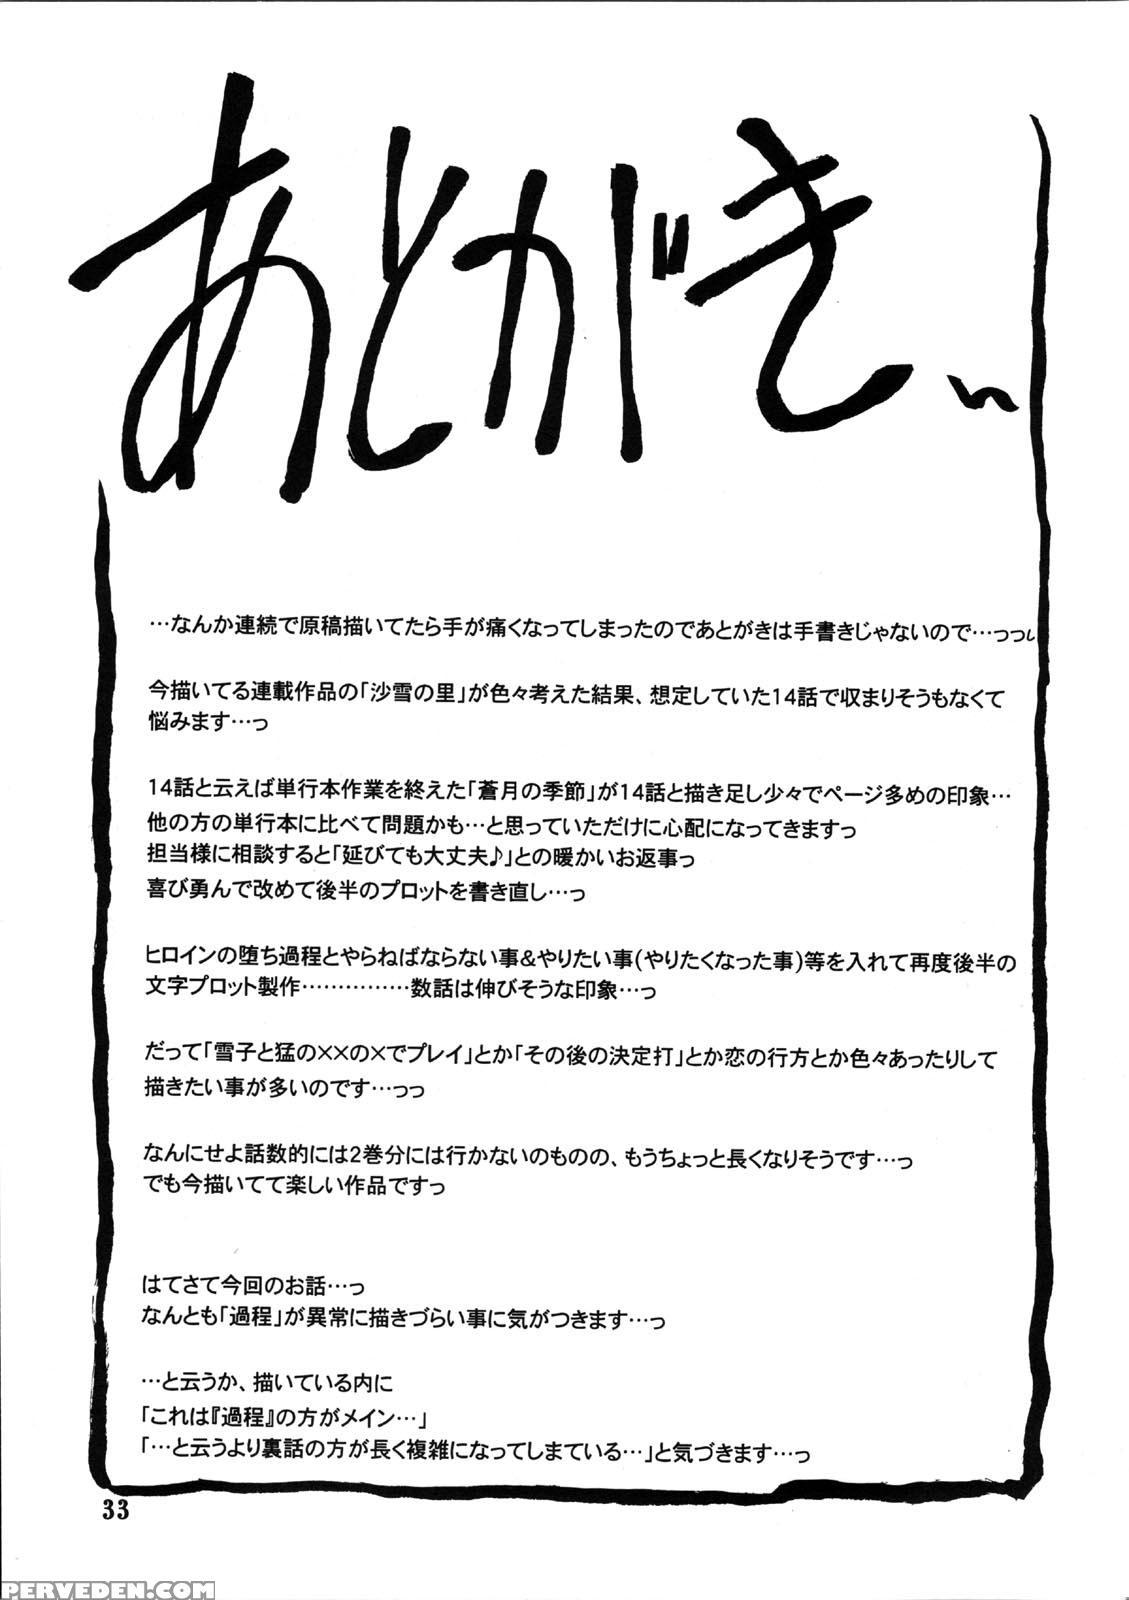 あとがき
…なんか連続で原稿描いてたら手が痛くなってしまったのであとがきは手書きじゃないので…っっ
今描いてる連載作品の「沙雪の里」が色々考えた結果、想定していた14話で収まりそうもなくて
悩みます…っ
14話と云えば単行本作業を終えた「蒼月の季節」が14話と描き足し少々でページ多めの印象…
他の方の単行本に比べて問題かも…と思っていただけに心配になってきますっ
担当様に相談すると「延びても大丈夫♪」との暖かいお返事っ
喜び勇んで改めて後半のプロットを書き直し…っ
ヒロインの堕ち過程とやらねばならない事&やりたい事(やりたくなった事)等を入れて再度後半の
文字プロット製作……………数話は伸びそうな印象…っ
だって「雪子と猛の××の×でプレイ」とか「その後の決定打」とか恋の行方とか色々あったりして
描きたい事が多いのです…っっ
なんにせよ話数的には2巻分には行かないのものの、もうちょっと長くなりそうです…っ
でも今描いてて楽しい作品ですっ
はてさて今回のお話…っ
なんとも「過程」が異常に描きづらい事に気がつきます…っ
…と云うか、描いている内に
「これは『過程』の方がメイン…」
「…と云うより裏話の方が長く複雑になってしまている…」と気づきます…っ
33
PERVEDEN.COM